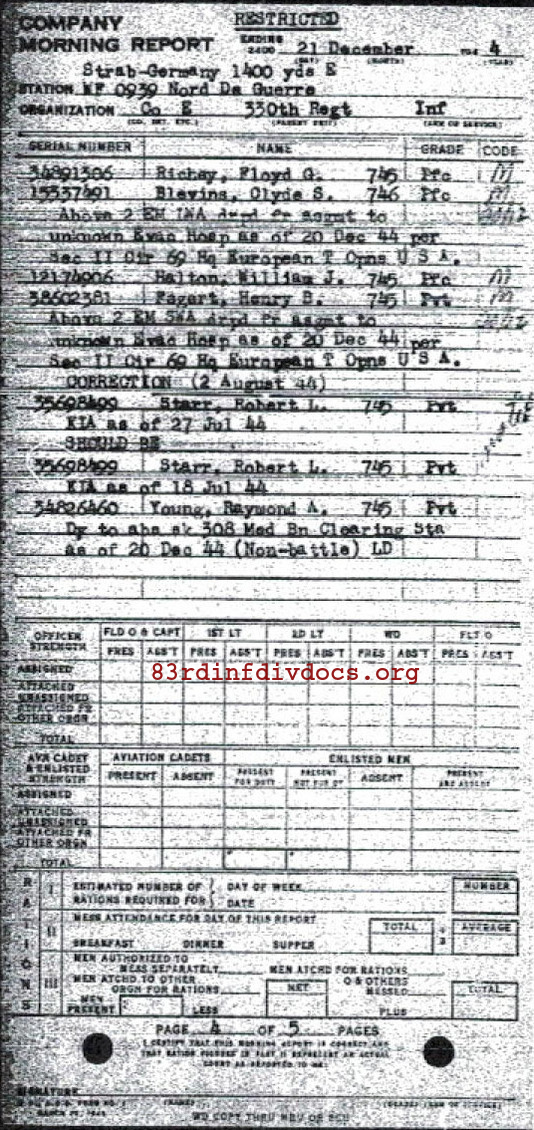 COMPANY
MORNING REPORT
RESTRICTED
ENDING 2400 21 December 4
Strab-Germany 1400 yds E
STATION WF 0939 Nord De Guerre
ORGANIZATION Co E 330th Regt Inf
SERIAL NUMBER NAME GRADE CODE
34891306 Richey, Floyd G. 745 Pfc M
15537491 Blevins, Clyde S. 746 Pfc M
Above 2 EM LWA drpd fr asgmt to
unknown Evac Hosp as of 20 Dec 44 per
Sec II Cir 69 Hq European T Opns U S A.
12174906 William J. 745 Pfc M
38602381 Henry B. 745 Pvt M
Above 2 EM SWA drpd fr asgmt to
unknown Evac Hosp as of 20 Dec 44 per
Sec II Cir 69 Hq European T Opns U S A.
CORRECTION (2 August 44)
35698499 Starr, Robert L. 745 Pvt
KIA as of 27 Jul 44
SHOULD BE
35698499 Starr, Robert L. 745 Pvt
KIA as of 18 Jul 44
34826460 Young, Raymond A. 745 Pvt
Dy to abs sk 308 Med Bn Clearing Sta
as of 20 Dec 44 (Non-battle) LD
OFFICER STRENGTH FLD O & CAPT 1ST LT 2D LT WO FLT O
PRES ABS'T PRES ABS'T PRES ABS'T PRES ABS'T PRES ABS'T
ASSIGNED
83rdinfdivdocs.org
ATTACHED UNASSIGNED
ATTACHED FR OTHER ORGN
TOTAL
AVN CADET & ENLISTED STRENGTH AVIATION CADETS ENLISTED MEN
PRESENT ABSENT PRESENT FOR DUTY PRESENT NOT FOR DY ABSENT PRESENT AND ABSENT
ASSIGNED
ATTACHED UNASSIGNED
ATTACHED FR OTHER ORGN
TOTAL
RATIONS
I ESTIMATED NUMBER OF RATIONS REQUIRED FOR DAY OF WEEK DATE NUMBER
II MESS ATTENDANCE FOR DAY OF THIS REPORT TOTAL AVERAGE
BREAKFAST DINNER SUPPER
III MEN AUTHORIZED TO MESS SEPARATELY MEN ATCHD FOR RATIONS
MEN ATCHD TO OTHER ORGN FOR RATIONS NET O & OTHERS MESSED TOTAL
MEN PRESENT LESS PLUS
PAGE 4 OF 5 PAGES
I CERTIFY THAT THIS MORNING REPORT IS CORRECT AND
THAT RATION FIGURES IN PART II REPRESENT AN ACTUAL
COUNT AS REPORTED TO ME:
SIGNATURE
WD COPY THRU MRU OR SCU